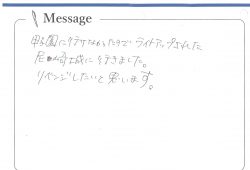 Message
甲子園に行けなかったので ライトアップされした
尼崎城に行きました。
リベンジしたいと思います。